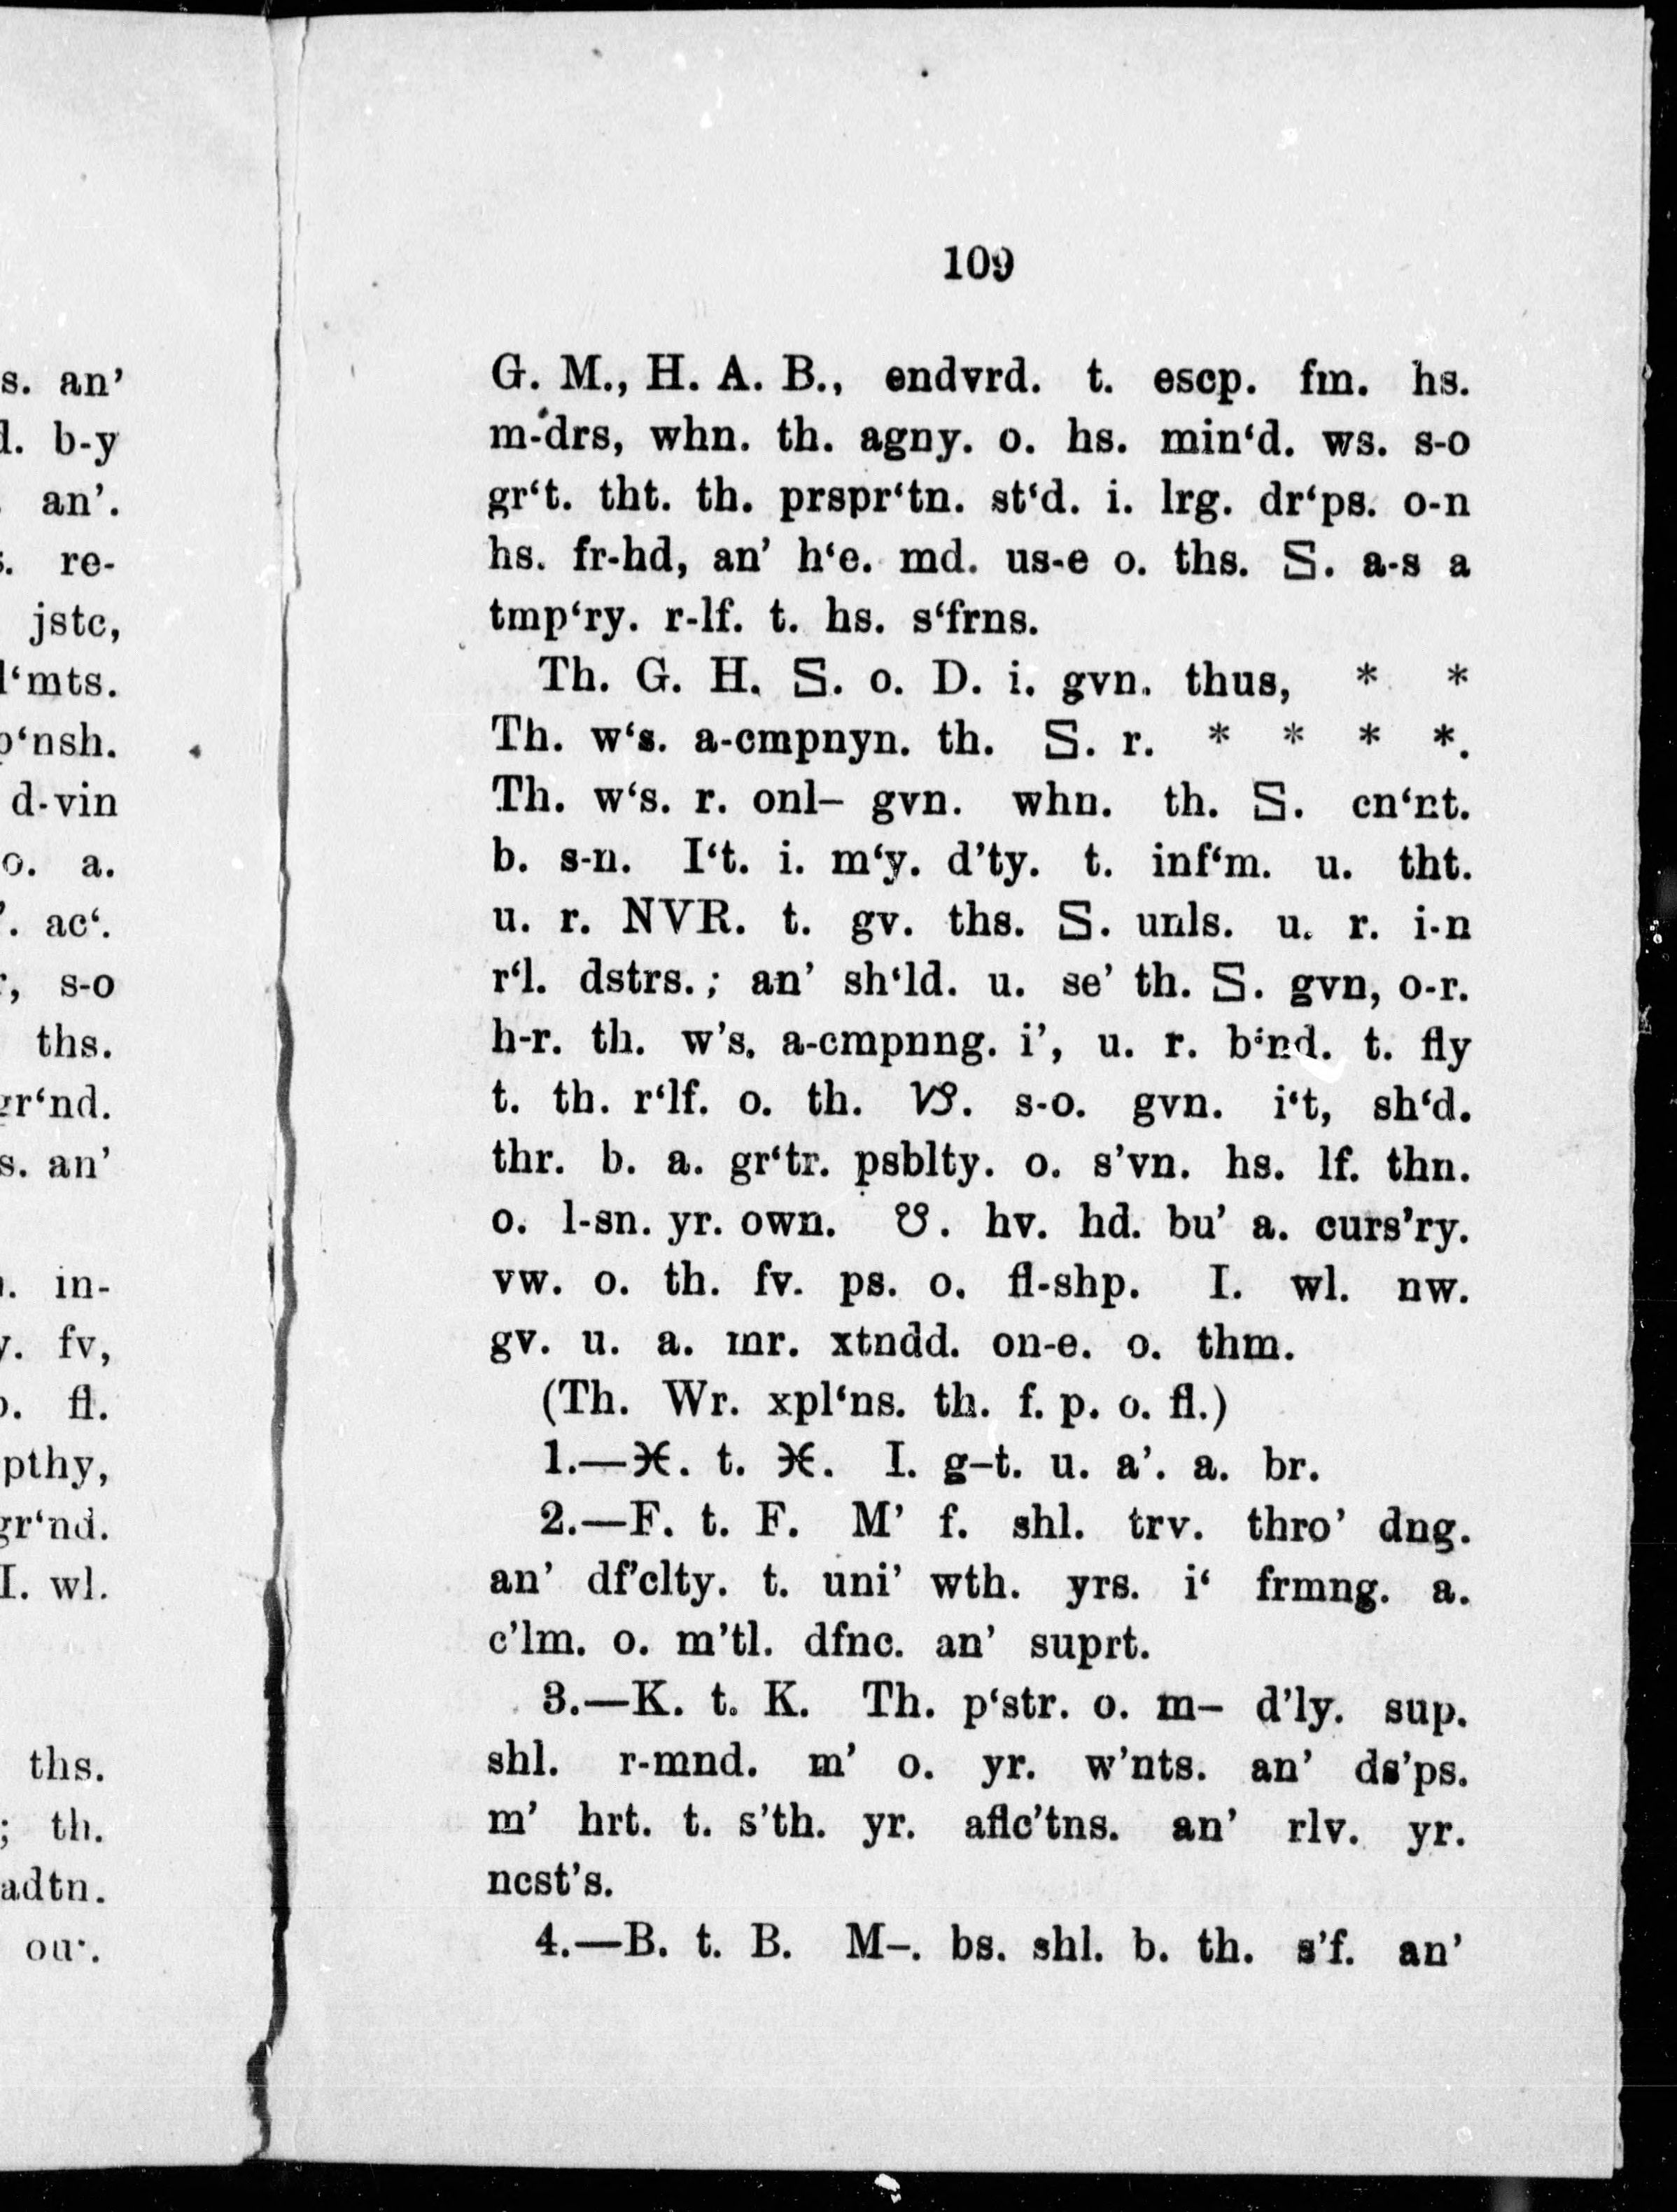 s. an’
d. b-y
an’.
s. re-
jstc,
l‘mts.
p‘nsh.
d-vin
o. a.
’. ac‘.
r, s-o
ths.
gr‘nd.
s. an’
in-
y. fv,
fl.
pthy,
gr‘nd.
I. wl.
ths.
; th.
adtn.
our.
109
G. M., H. A. B., endvrd. t. escp. fm. hs.
m-drs, whn. th. agny. o. hs. min‘d. ws. s-o
gr‘t. tht. th. prspr‘tn. st‘d. i. lrg. dr‘ps. o-n
hs. fr-hd, an’ h‘e. md. us-e o. ths. S. a-s a
tmp‘ry. r-lf. t. hs. s‘frns.
Th. G. H. S. o. D. i. gvn. thus, * *
Th. w‘s. a-cmpnyn. th. S. r. * * * *.
Th. w‘s. r. onl– gvn. whn. th. S. cn‘nt.
b. s-n. I‘t. i. m‘y. d’ty. t. inf‘m. u. tht.
u. r. NVR. t. gv. ths. S. unls. u. r. i-n
r‘l. dstrs.; an’ sh‘ld. u. se’ th. S. gvn, o-r.
h-r. th. w’s. a-cmpnng. i’, u. r. b‘nd. t. fly
t. th. r‘lf. o. th. ♑. s-o. gvn. i‘t, sh‘d.
thr. b. a. gr‘tr. psblty. o. s’vn. hs. lf. thn.
o. l-sn. yr. own. ☋. hv. hd. bu’ a. curs’ry.
vw. o. th. fv. ps. o. fl-shp. I. wl. nw.
gv. u. a. mr. xtndd. on-e. o. thm.
(Th. Wr. xpl‘ns. th. f. p. o. fl.)
1.—♓. t. ♓. I. g–t. u. a’. a. br.
2.—F. t. F. M’ f. shl. trv. thro’ dng.
an’ df’clty. t. uni’ wth. yrs. i‘ frmng. a.
c’lm. o. m’tl. dfnc. an’ suprt.
3.—K. t. K. Th. p‘str. o. m– d’ly. sup.
shl. r-mnd. m’ o. yr. w’nts. an’ ds’ps.
m’ hrt. t. s’th. yr. aflc’tns. an’ rlv. yr.
ncst’s.
4.—B. t. B. M–. bs. shl. b. th. s’f. an’